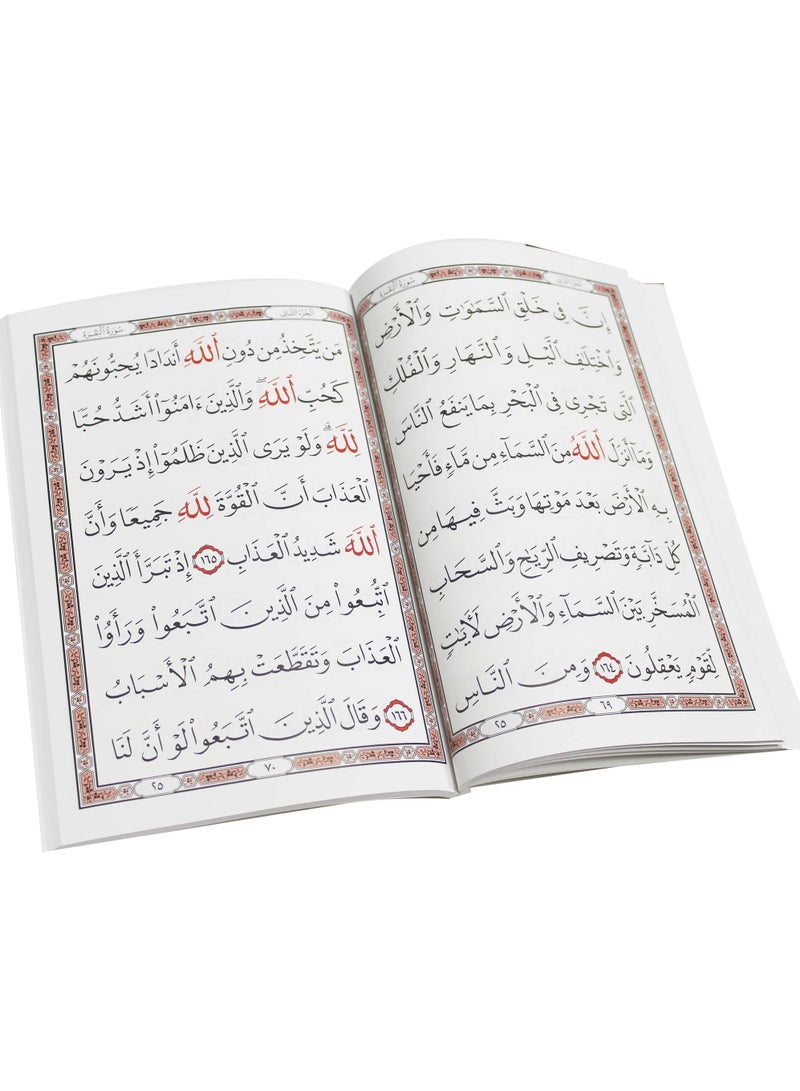 الجزء الثاني
سورة البقرة
إِنَّ فِى خَلْقِ ٱلسَّمَٰوَٰتِ وَٱلْأَرْضِ
وَٱخْتِلَٰفِ ٱلَّيْلِ وَٱلنَّهَارِ وَٱلْفُلْكِ
ٱلَّتِى تَجْرِى فِى ٱلْبَحْرِ بِمَا يَنفَعُ ٱلنَّاسَ
وَمَآ أَنزَلَ ٱللَّهُ مِنَ ٱلسَّمَآءِ مِن مَّآءٍ فَأَحْيَا
بِهِ ٱلْأَرْضَ بَعْدَ مَوْتِهَا وَبَثَّ فِيهَا مِن
كُلِّ دَآبَّةٍ وَتَصْرِيفِ ٱلرِّيَٰحِ وَٱلسَّحَابِ
ٱلْمُسَخَّرِ بَيْنَ ٱلسَّمَآءِ وَٱلْأَرْضِ لَءَايَٰتٍ
لِّقَوْمٍ يَعْقِلُونَ ١٦٤ وَمِنَ ٱلنَّاسِ
٦٩
٢٥
الجزء الثاني
سورة البقرة
مَن يَتَّخِذُ مِن دُونِ ٱللَّهِ أَندَادًا يُحِبُّونَهُمْ
كَحُبِّ ٱللَّهِ ۖ وَٱلَّذِينَ ءَامَنُوٓا۟ أَشَدُّ حُبًّا
لِّلَّهِ ۗ وَلَوْ يَرَى ٱلَّذِينَ ظَلَمُوٓا۟ إِذْ يَرَوْنَ
ٱلْعَذَابَ أَنَّ ٱلْقُوَّةَ لِلَّهِ جَمِيعًا وَأَنَّ
ٱللَّهَ شَدِيدُ ٱلْعَذَابِ ١٦٥ إِذْ تَبَرَّأَ ٱلَّذِينَ
ٱتُّبِعُوا۟ مِنَ ٱلَّذِينَ ٱتَّبَعُوا۟ وَرَأَوُا۟
ٱلْعَذَابَ وَتَقَطَّعَتْ بِهِمُ ٱلْأَسْبَابُ
١٦٦ وَقَالَ ٱلَّذِينَ ٱتَّبَعُوا۟ لَوْ أَنَّ لَنَا
٧٠
٢٥